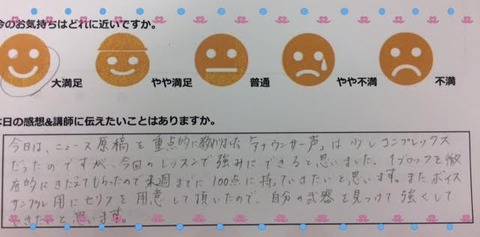 今のお気持ちはどれに近いですか。
大満足 やや満足 普通 やや不満 不満
本日の感想&講師に伝えたいことはありますか。
今日は、ニュース原稿を重点的に教わりました。「アナウンサー声」は少しコンプレックス
だったのですが、今回のレッスンで強みにできると思いました。1ブロックを徹
底的にきたえてもらったので来週までに100点に持っていきたいと思います。またボイス
サンプル用にセリフを用意して頂いたので、自分の武器を見つけて強くして
いきたいと思います。